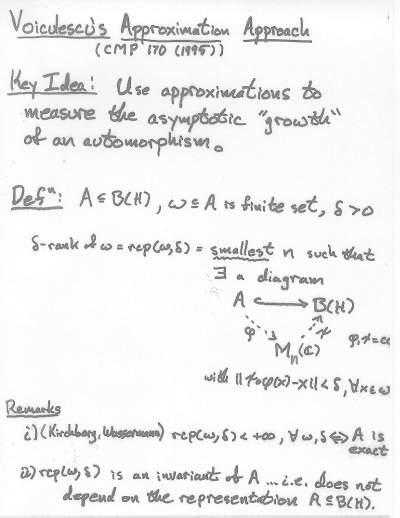 Voiculescu's Approximation Approach
(CMP 170 (1995))
Key Idea: Use approximations to
measure the asymptotic "growth"
of an automorphism.
Defⁿ: A ⊆ B(H), ω ⊆ A is finite set, δ > 0
δ-rank of ω = rcp(ω,δ) = smallest n such that
∃ a diagram
A ↪ B(H)
φ ψ φ,ψ = cc
Mₙ(ℂ)
with ||ψ∘φ(x) - x|| < δ, ∀x∈ω
Remarks
i) (Kirchberg, Wassermann) rcp(ω,δ) < +∞, ∀ ω,δ ⇔ A is
exact
ii) rcp(ω,δ) is an invariant of A ... i.e. does not
depend on the representation A ⊆ B(H).